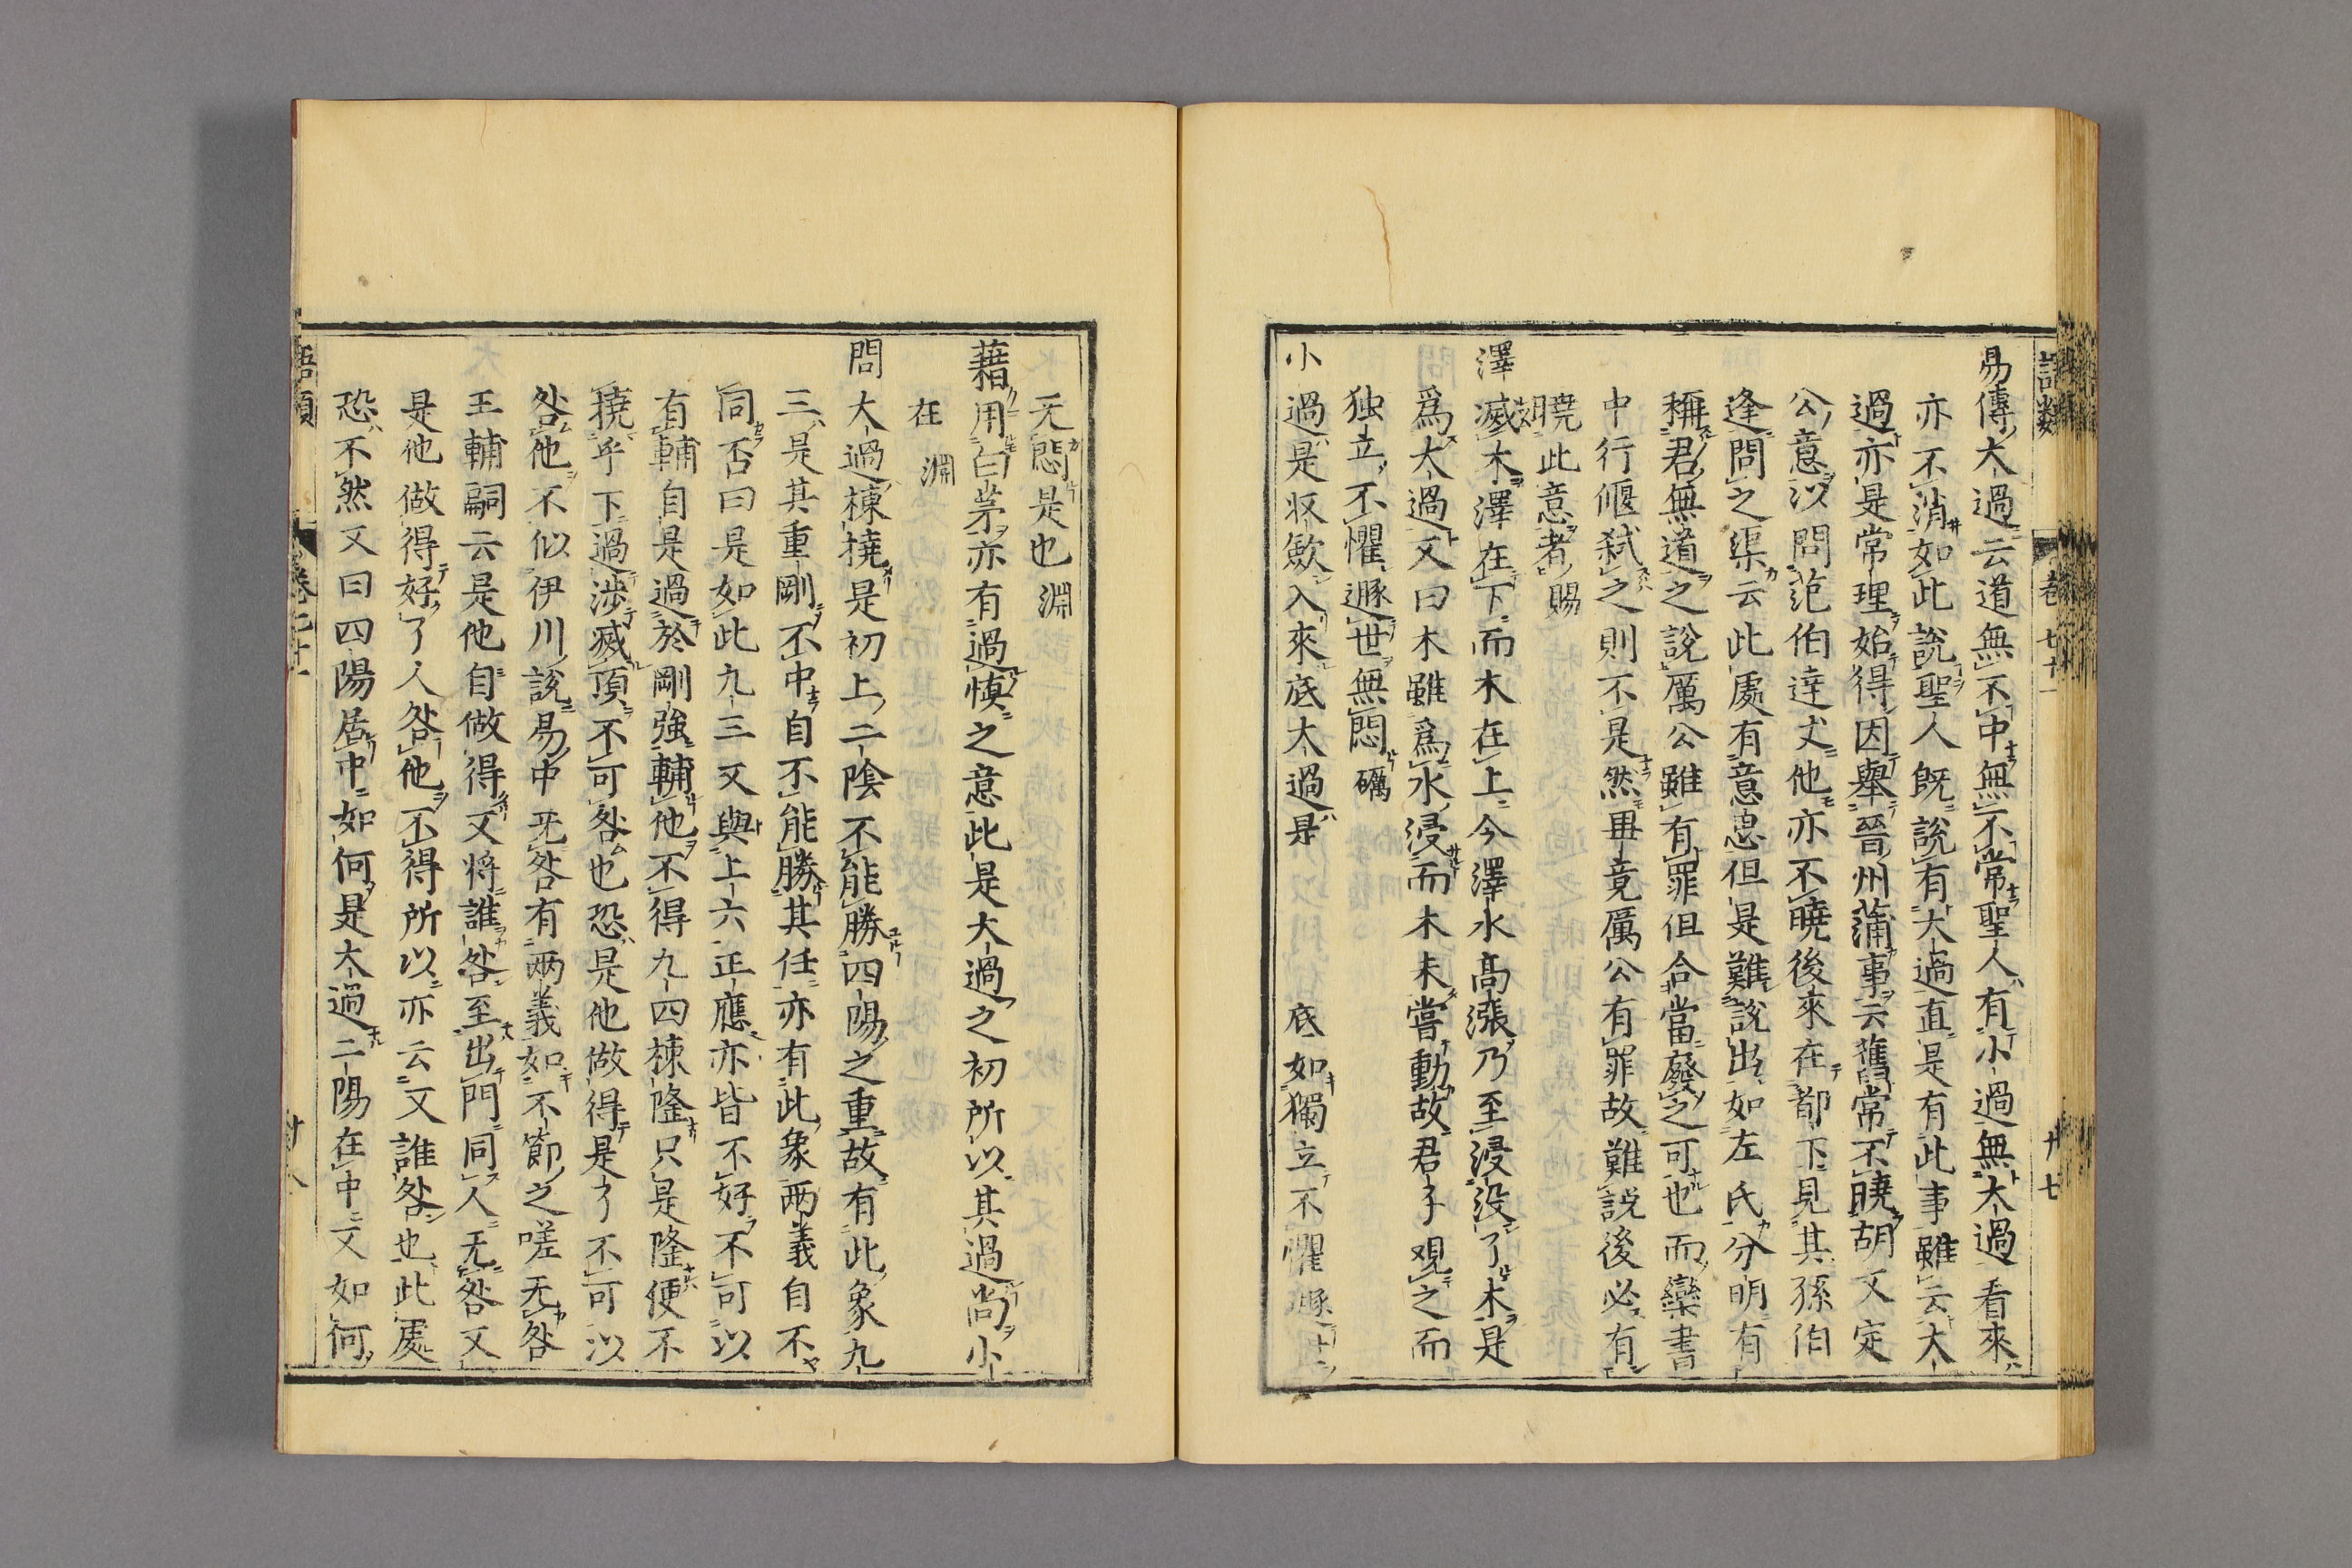 語類 卷七十一 廿七
易傳大過云道無不中無不常聖人有小過無大過看來
亦不消如此說聖人旣說有大過直是有此事雖云大
過亦是常理始得因舉晉州蒲事云舊常不曉胡文定
公意以問范伯達丈他亦不曉後來在都下見其孫伯
逢問之渠云此處有意思但是難說出如左氏分明有
稱君無道之說厲公雖有罪但合當廢之可也而欒書
中行偃弑之則不是然畢竟厲公有罪故難說後必有
曉此意者賜
澤滅木澤在下而木在上今澤水高漲乃至浸沒了木是
爲大過又曰木雖爲水浸而木未嘗動故君子觀之而
独立不懼遯世無悶礪
小過是収斂入來底大過是 底如獨立不懼遯
无悶是也淵
藉用白茅亦有過慎之意此是大過之初所以其過尚小
在淵
問大過棟撓是初上二陰不能勝四陽之重故有此象九
三是其重剛不中自不能勝其任亦有此象兩義自不
同否曰是如此九三又與上六正應亦皆不好不可以
有輔自是過於剛強輔他不得九四棟隆只是隆便不
撓乎下過涉滅頂不可咎也恐是他做得是了不可以
咎他不似伊川說易中无咎有兩義如不節之嗟无咎
王輔嗣云是他自做得又將誰咎至出門同人无咎又
是他做得好了人咎他不得所以亦云又誰咎也此處
恐不然又曰四陽居中如何是大過二陽在中又如何
語類 卷七十一 廿八